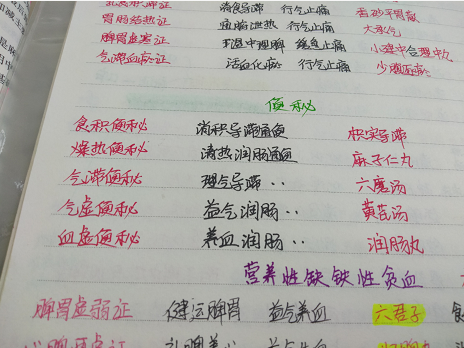 消食导滞 行气止痛 香砂平胃散
胃肠结热证 通腑泄热 行气止痛 大承气
脾胃虚寒证 温中理脾 缓急止痛 小建中合理中丸
气滞血瘀证 活血化瘀 行气止痛 少腹逐瘀
便秘
食积便秘 消积导滞通便 枳实导滞
燥热便秘 清热润肠通便 麻子仁丸
气滞便秘 理气导滞‥ 六磨汤
气虚便秘 益气润肠‥ 黄芪汤
血虚便秘 养血润肠‥ 润肠丸
营养性缺铁性贫血
脾胃虚弱证 健运脾胃 益气养血 六君子